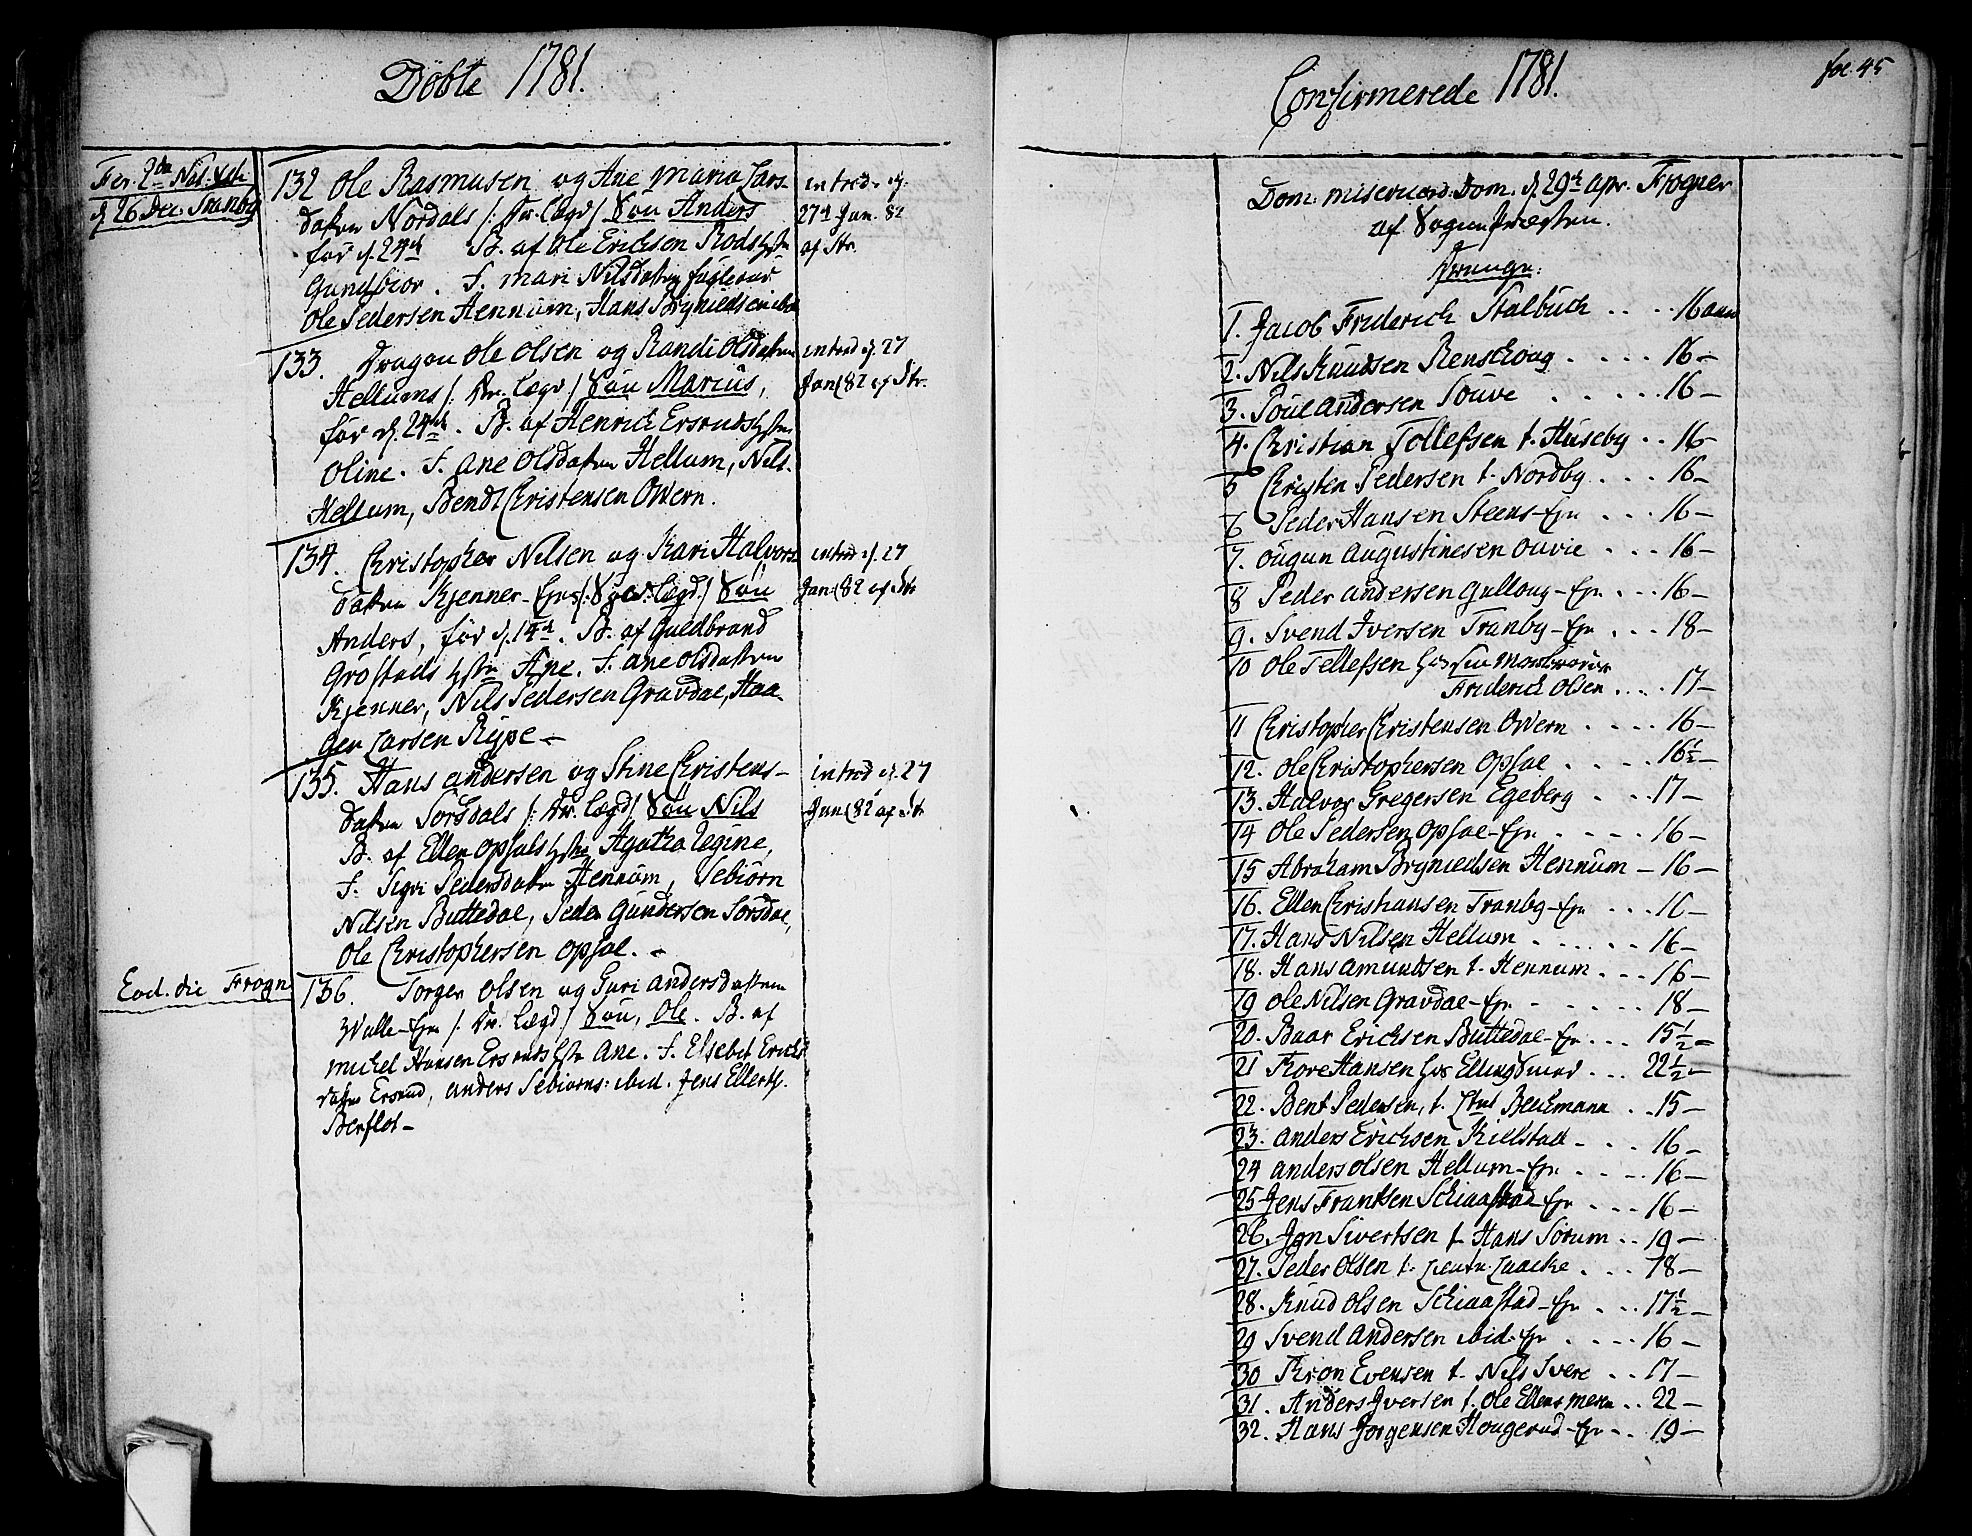 Döbte 1781.
Fer. 2da Nat.
d 26 Dec. Tranby
132 Ole Rasmusen og Ane Maria Lars-
datter Nordals /: Dr. Lægd / Søn Anders
för d. 24de B. af Ole Ericksen Rods
Gunilbior. F. Mari Nilsdatter
Ole Pedersen Hennum, Hans Brynildsen ibid
introd. d.
27d Jan. 82
af Str.
133. Dragon Ole Olsen og Randi Olsdatter
Hellums /: Dr. Lægd / Søn Marius,
för d. 24de. B. af Henrich Ersruds
Oline. F. Ane Olsdatter Hellum, Nils
Hellum, Bendt Christensen Overn.
introd d. 27
Jan 82 af Str.
134. Christopher Nilsen og Kari Halvors
datter Kjenner-Eje /: Lægd / Søn
Anders, för d. 14d. B. af Guldbrand
Gröstads Ane. F. Ane Olsdatter
Kjenner, Nils Pedersen Gravdal, Haa-
gen Larsen Rype -
introd d. 27
Jan 82 af Str
135. Hans Andersen og Stine Christens-
datter Sorsdals /: Dr. Lægd / Søn Nils
B. af Ellen Opsals Agatha Regine,
F. Sigri Pedersdatter Hennum, Sebiörn
Nilsen Buttedal, Peder Gundersen Sorsdal,
Ole Christophersen Opsal. -
introd d. 27
Jan 82 af Str
Eod. die Frogn
136. Torger Olsen og Guri Andersdatter
Walle-Eje /: Dr. Lægd / Søn, Ole. B. af
Michel Hansen Ersruds Ane. F. Elsebet Ericks
datter Ersrud, Anders Sebiörns: ibid. Jens Ellerts.
Berflot -
Confirmerede 1781.
fol. 45
Dom. Misericord. Dom. d 29d Apr. Frogner
af Sognepræsten.
Drenge:
1. Jacob Friderich Stalbuch .... 16 ann
2. Nils Knudsen Renskoug .... 16 -
3. Poul Andersen Touve ..... 16 -
4. Christian Tollefsen t. Huseby .. 16 -
5 Christen Pedersen t. Nordby ... 16 -
6 Peder Hansen Steens-Eje ... 16 -
7. Ougun Augustinesen Ouvie ... 16 -
8 Peder Andersen Gulloug-Eje ... 16 -
9. Svend Iversen Tranby-Eje ... 18 -
10 Ole Tellefsen hos sin Morbroder
Friderich Olsen .... 17 -
11 Christopher Christensen Overn .... 16 -
12. Ole Christophersen Opsal ..... 16½ -
13. Halvor Gregersen Egeberg ... 17 -
14 Ole Pedersen Opsal-Eje .... 16 -
15 Abraham Brynildsen Hennum - 16 -
16. Ellen Christiansen Tranby-Eje ... 16 -
17. Hans Nilsen Hellum ...... 16 -
18. Hans Amundsen t. Hennum ... 16 -
19 Ole Nilsen Gravdal-Eje ...... 18 -
20. Baar Ericksen Buttedal-Eje ... 15½ -
21 Thore Hansen hos Elling Smed ... 22½ -
22. Bent Pedersen, t. Beckmann .. 15 -
23. Anders Ericksen Kielstad - .. 16 -
24 Anders Olsen Hellum-Eje ..... 16 -
25 Jens Frantsen Schiaastad-Eje ... 16 -
26. Jon Sivertsen t. Hans Sorum .. 19 -
27. Peder Olsen t. Laacke ... 18 -
28. Knud Olsen Schiaastad-Eje ... 17½ -
29 Svend Andersen ibid-Eje .... 16 -
30 Thron Evensen t. Nils Ivere .. 17 -
31. Anders Iversen t. Ole Ellens Meren .. 22 -
32. Hans Jorgensen Hougerud-Eje .. 19 -